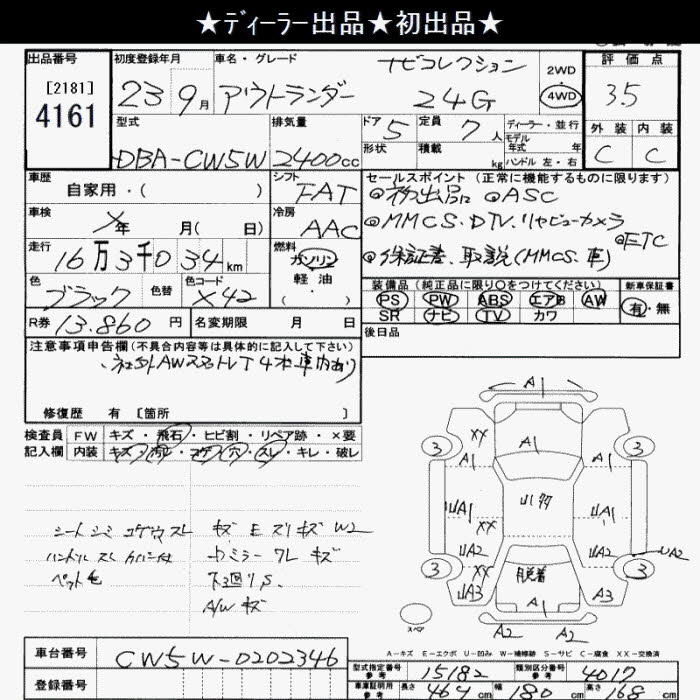 ★ディーラー出品★初出品★
出品番号 初度登録年月 車名・グレード 評価点
[2181]
4161
23 9月 アウトランダー ナビコレクション 24G
2WD
4WD
3.5
型式 排気量 ドア 定員 ディーラー・並行 外装 内装
DBA-CW5W 2400cc 5 7人
形状 積載 kg
モデル年式 年式
ハンドル 左・右
C C
車歴 シフト セールスポイント (正常に機能するものに限ります)
自家用・( ) FAT
◎初出品 ◎ASC
車検 冷房
年 月( 日) AAC
◎MMCS.DTV.リヤビューカメラ
◎ETC
走行 燃料
16万3千034km ガソリン
軽油
( )
◎保証書、取説(MMCS、車)
色 色替 色コード 装備品 (純正品に限り〇をつけてください) 新車保証書
ブラック X42 PS PW ABS エアB AW 有・無
SR ナビ TV カワ
R券 13.860円 名変期限 月 日 後日品
注意事項申告欄(不具合内容等は具体的に記入して下さい)
社外AWスタッドレス4本車内あり
修復歴 有 [箇所 ]
検査員 FW キズ・飛石・ヒビ割・リペア跡・×要
記入欄 内装 キズ・汚レ・コゲ・穴・スレ・キレ・破レ
シートシミ コゲ穴スレ キズ E スリキズ W2
ハンドル スレ カバー付 ミラー ワレ キズ
ペット毛 下廻りS.
A/W キズ
A1
XX A1
3 A1 A1 3
UA1 A1
XX
UA2 UA2 UA2
XX
3 脱着 3
A1 A3
A2 A2
スペア
A-キズ E-エクボ U-凹み W-補修跡 S-サビ C-腐食 XX-交換済
車台番号 CW5W-0202346
登録番号
型式指定番号 参考 15182 類別区分番号 参考 4017
車庫証明用 参考 長さ 467cm 幅 180cm 高さ 168cm